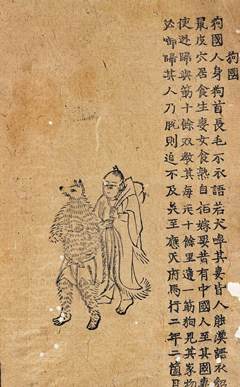 狗國
狗國人身狗首長毛不衣語若犬嘷其妻皆人能漢語衣貂
鼠皮穴居食生妻女食熟自相嫁娶昔有中國人至其國妻
使逃歸與筋十餘双教其每走十餘里遺一筋狗見其家物
必啣歸其人乃脫則追不及矣至應天府馬行二年二箇月